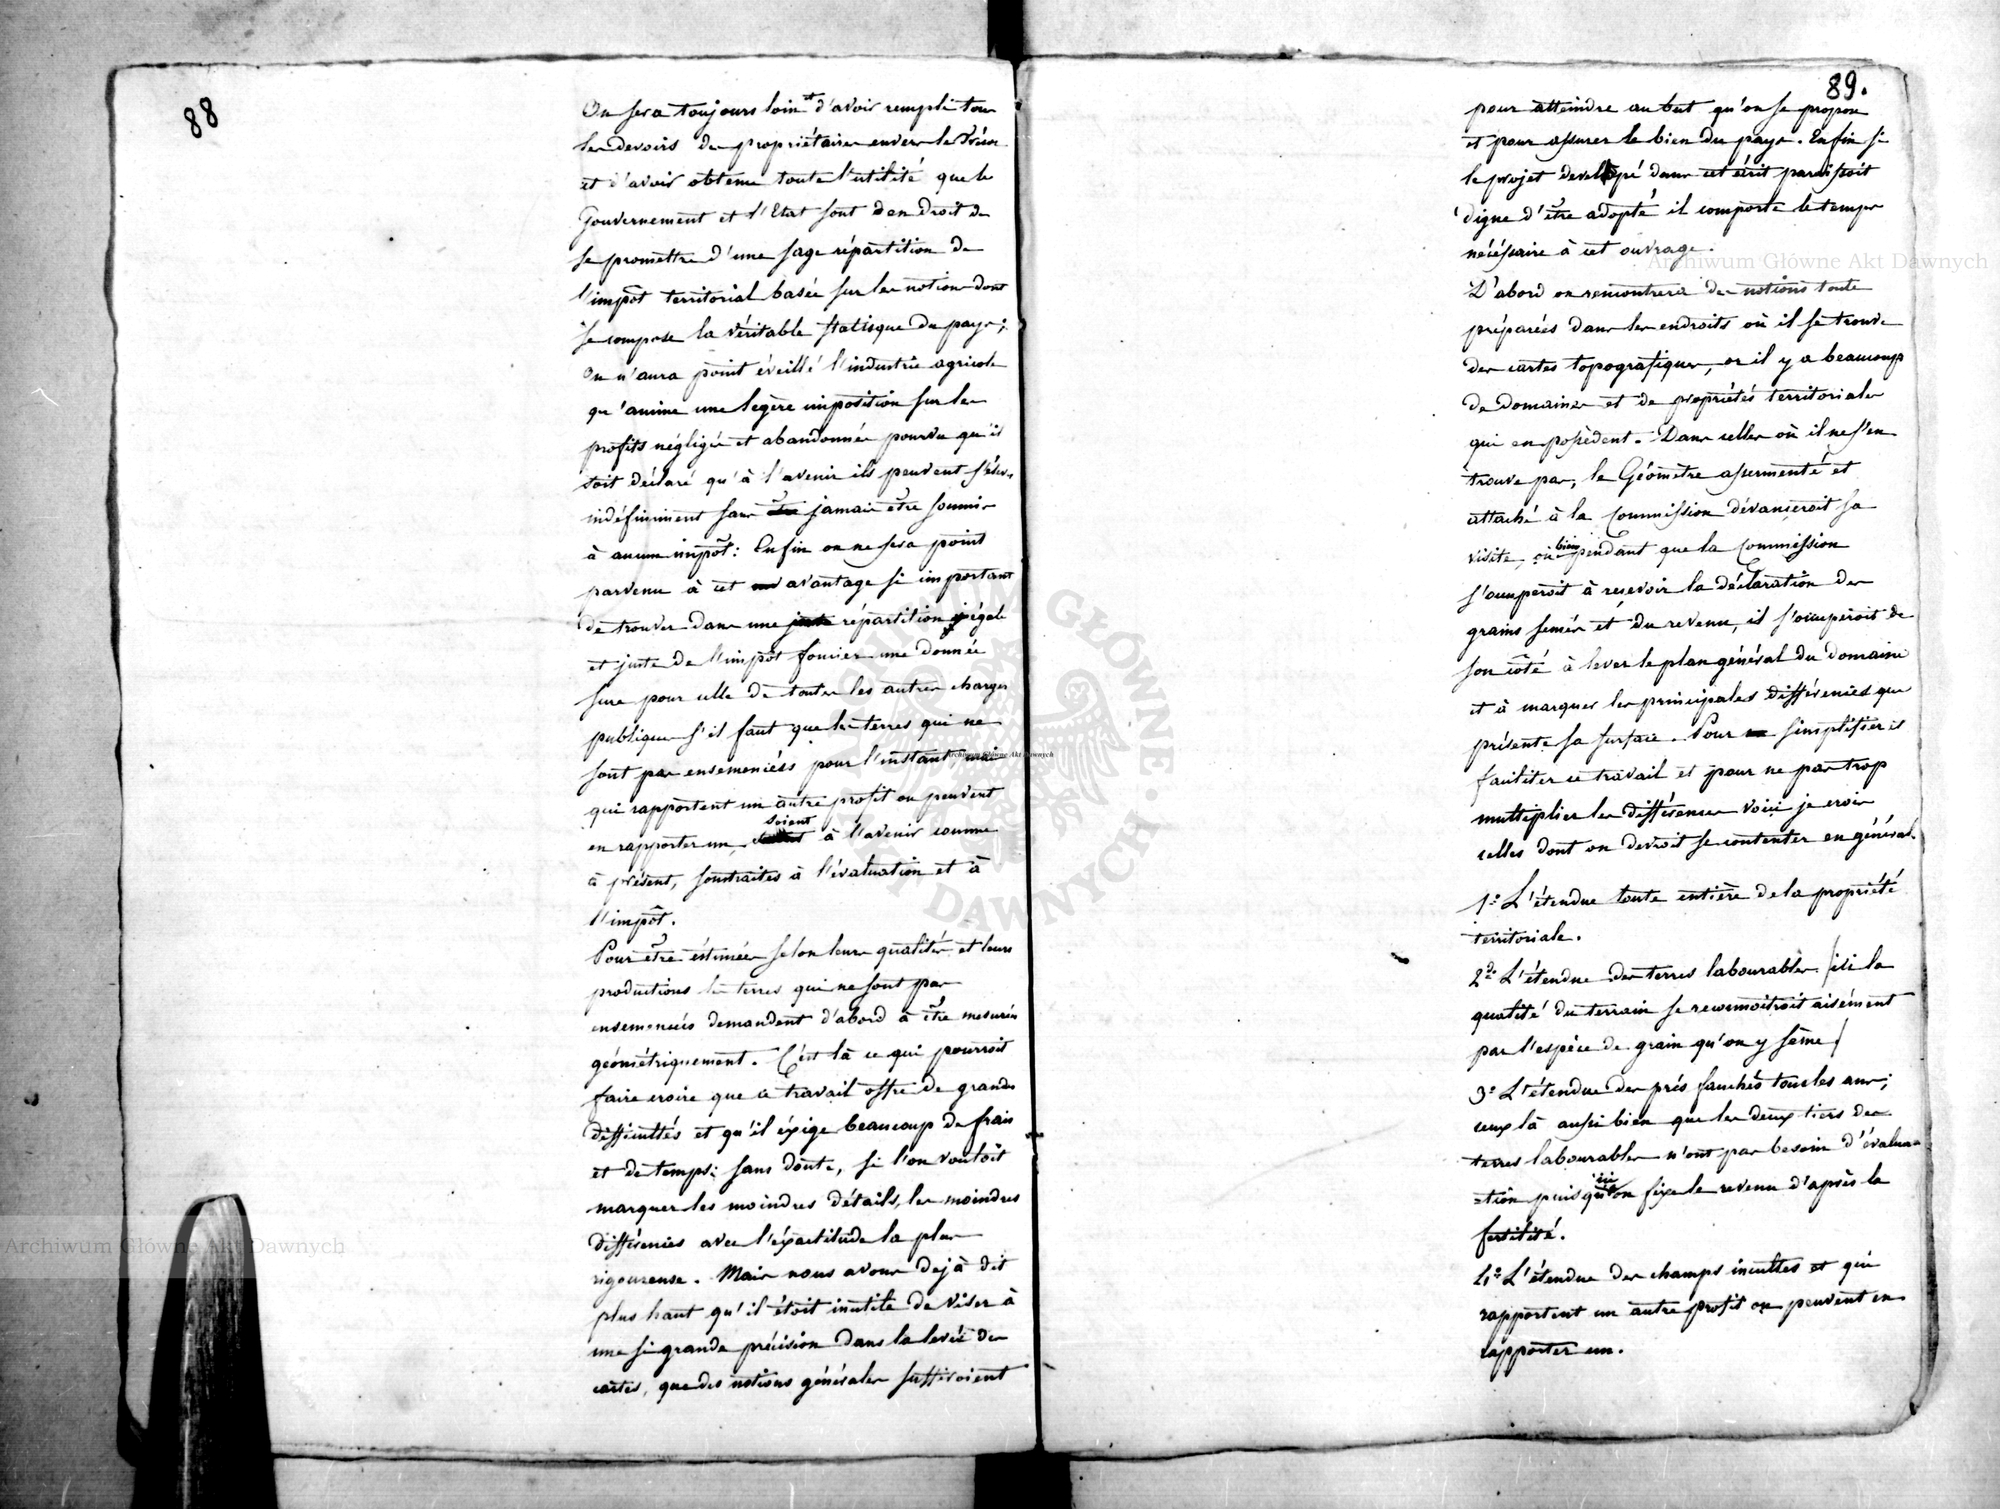 88
On sera toujours loin et d'avoir rempli tous
les devoirs des propriétaires envers le Trésor
et d'avoir obtenu toute l'utilité que le
Gouvernement et l'Etat sont d'en droit de
se promettre d'une sage répartition de
l'impôt territorial basée sur les notions dont
se compose la véritable statisque du pays;
On n'aura point éveillé l'industrie agricole
qu'anime une legère imposition sur les
profits négligés et abandonnés pourvu qu'il
soit déclaré qu'à l'avenir ils peuvent s'élever
indéfiniment sans être jamais être soumis
à aucun impôt: Enfin on ne sera point
parvenu à cet avantage si important
de trouver dans une juste répartition égale
et juste de l'impôt foncier une donnée
sure pour celle de toutes les autres charges
publiques s'il faut que les terres qui ne
sont pas ensemencées pour l'instant mais
qui rapportent un autre profit ou peuvent
en rapporter un, soient à l'avenir comme
à présent, soustraites à l'évaluation et à
l'impôt.
Pour être éstimées selon leurs qualités et leurs
productions les terres qui ne sont pas
ensemencées demandent d'abord à être mesurées
géométriquement. C'est là ce qui pourroit
faire croire que ce travail offre de grandes
difficultés et qu'il éxige beaucoup de frais
et de temps; sans doute, si l'on vouloit
marquer les moindres détails, les moindres
différences avec l'éxactitude la plus
rigoureuse. Mais nous avons dejà dit
plus haut qu'il étoit inutile de viser à
une si grande précision dans la levée des
cartes, que des notions générales suffiroient
89.
pour atteindre au but qu'on se propose
et pour assurer le bien du pays. Enfin si
le projet developé dans cet écrit paroissoit
digne d'être adopté il comporte le temps
nécéssaire à cet ouvrage.
D'abord on rencontrera des notions toute
préparées dans les endroits où il se trouve
des cartes topografiques, or il y a beaucoup
de domaines et de propriétés territoriales
qui en possèdent. Dans celles où il ne s'en
trouve pas, le Géomètre assermenté et
attaché à la Commission dévanceroit sa
visite, ou bien pendant que la Commission
s'occuperoit à recevoir la déclaration des
grains semés et du revenu, il s'occuperoit de
son côté à lever le plan général du domaine
et à marquer les principales différences que
présente sa surface. Pour simplifier et
faciliter ce travail et pour ne pas trop
multiplier les différences voici je crois
celles dont on devroit se contenter en général.
1º L'étendue toute entière de la propriété
territoriale.
2do L'étendue des terres labourables (ici la
qualité du terrain se reconnoitroit aisément
par l'espèce de grain qu'on y sème)
3º L'étendue des prés fauchés tous les ans;
ceux là aussi bien que les deux tiers des
terres labourables n'ont pas besoin d'évalua=
=tion puisqu'on ici fixe le revenu d'après la
fertilité.
4º L'étendue des champs incultes et qui
rapportent un autre profit ou peuvent en
rapporter un.
Archiwum Główne Akt Dawnych
Archiwum Główne Akt Dawnych
Archiwum Główne Akt Dawnych
ARCHIWUM GŁÓWNE AKT DAWNYCH